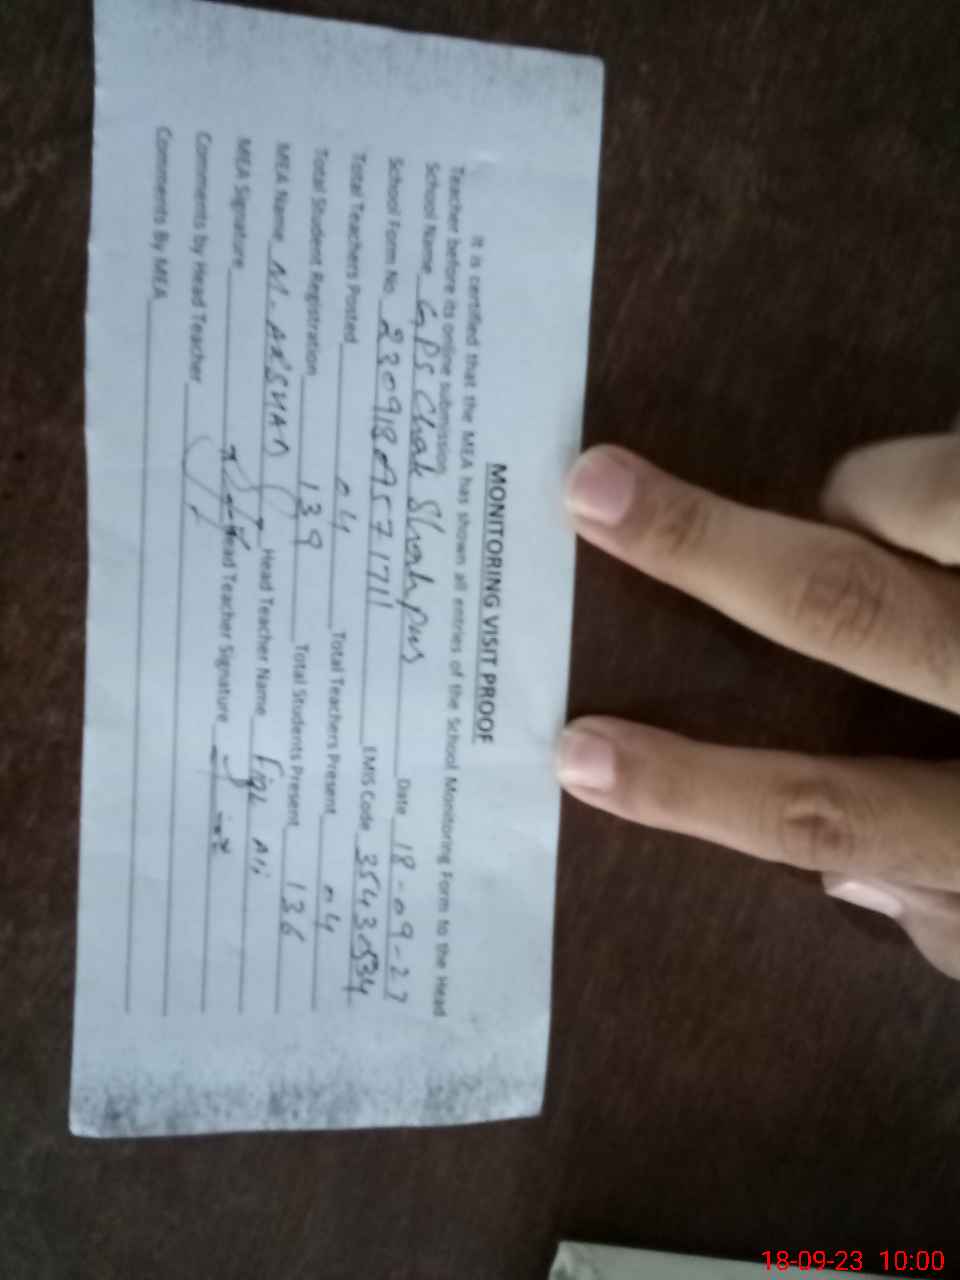 MONITORING VISIT PROOF
It is certified that the MEA has shown all entries of the School Monitoring Form to the Head
Teacher before its online submission
School Name GPS Chak Shahpur Date 18-09-23
School Form No EMIS Code
Total Teachers Posted 04 Total Teachers Present 04
Total Student Registration 139 Total Students Present 136
MEA Name M. ARSHAD Head Teacher Name Ali
MEA Signature Head Teacher Signature
Comments by Head Teacher
Comments By MEA
18-09-23 10:00